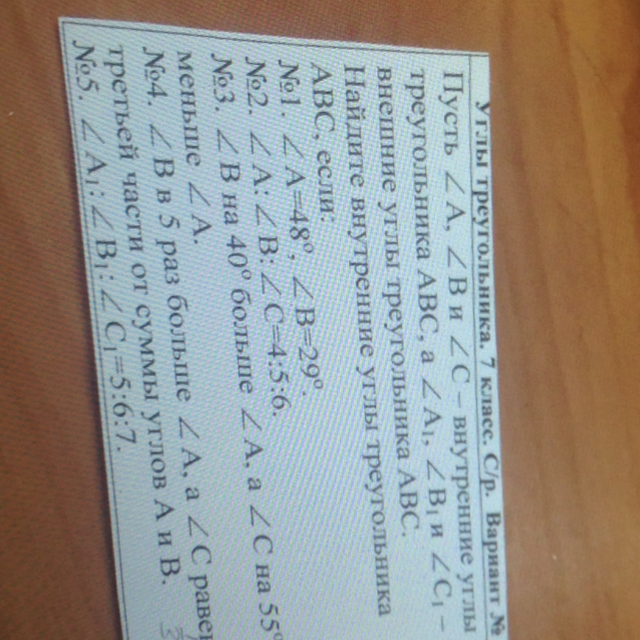 Углы треугольника. 7 класс. С/р. Вариант №
Пусть ∠A, ∠B и ∠C – внутренние углы
треугольника ABC, а ∠A₁, ∠B₁ и ∠C₁ –
внешние углы треугольника ABC.
Найдите внутренние углы треугольника
ABC, если:
№1. ∠A=48º, ∠B=29º.
№2. ∠A:∠B:∠C=4:5:6.
№3. ∠B на 40º больше ∠A, а ∠C на 55º
меньше ∠A.
№4. ∠B в 5 раз больше ∠A, а ∠C равен
третьей части от суммы углов A и B.
№5. ∠A₁:∠B₁:∠C₁=5:6:7.